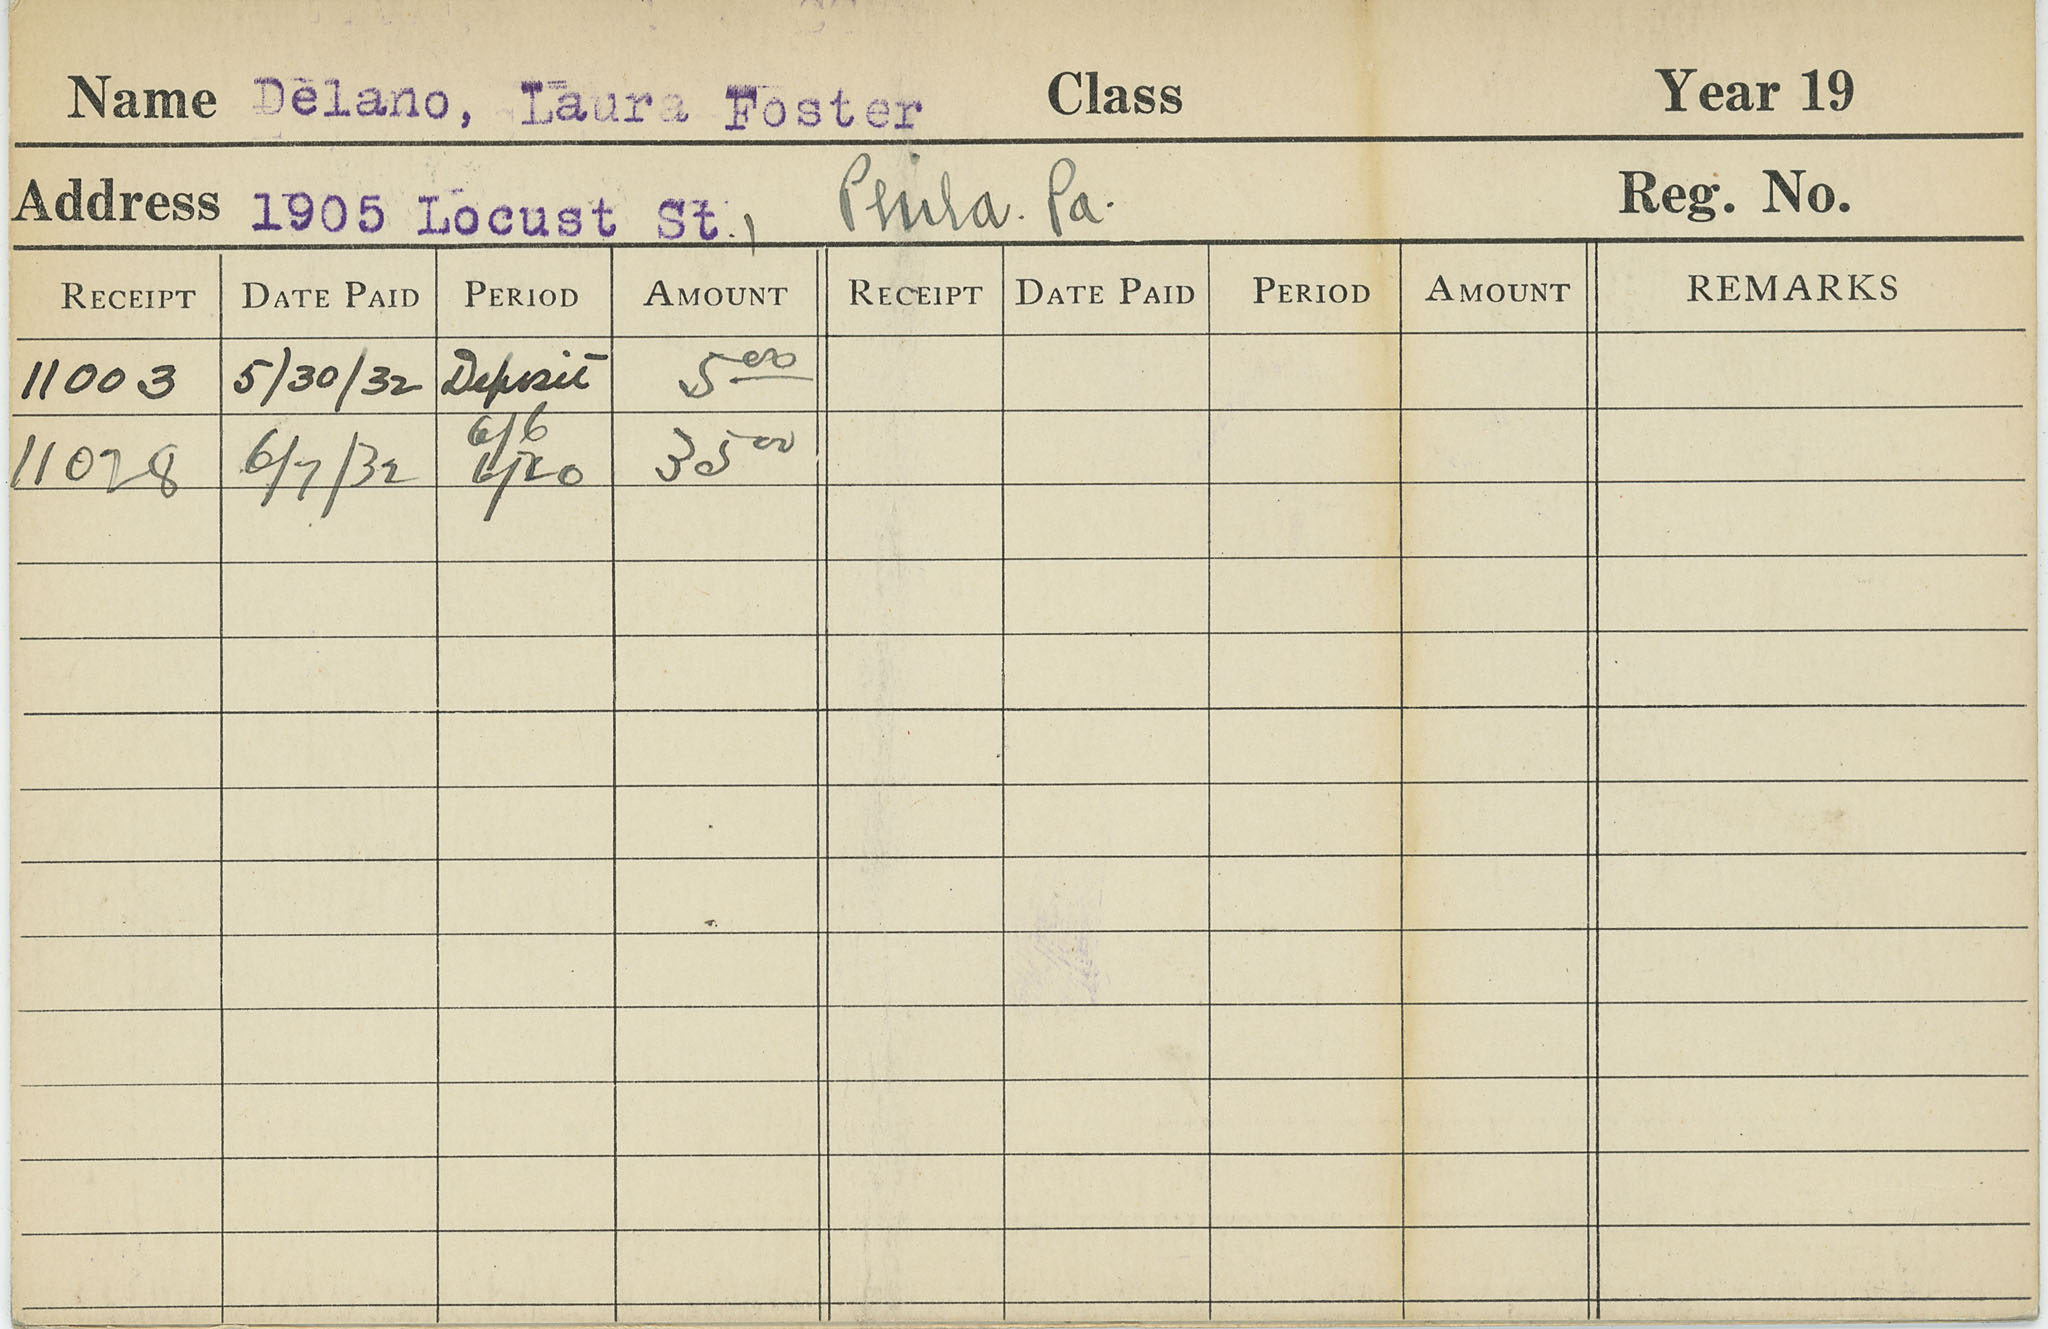 Name Delano, Laura Foster Class Year 19
Address 1905 Locust St., Phila. Pa. Reg. No.
RECEIPT DATE PAID PERIOD AMOUNT RECEIPT DATE PAID PERIOD AMOUNT REMARKS
11003 5/30/32 Deposit 5 00
11028 6/7/32 6/6 6/20 35 00